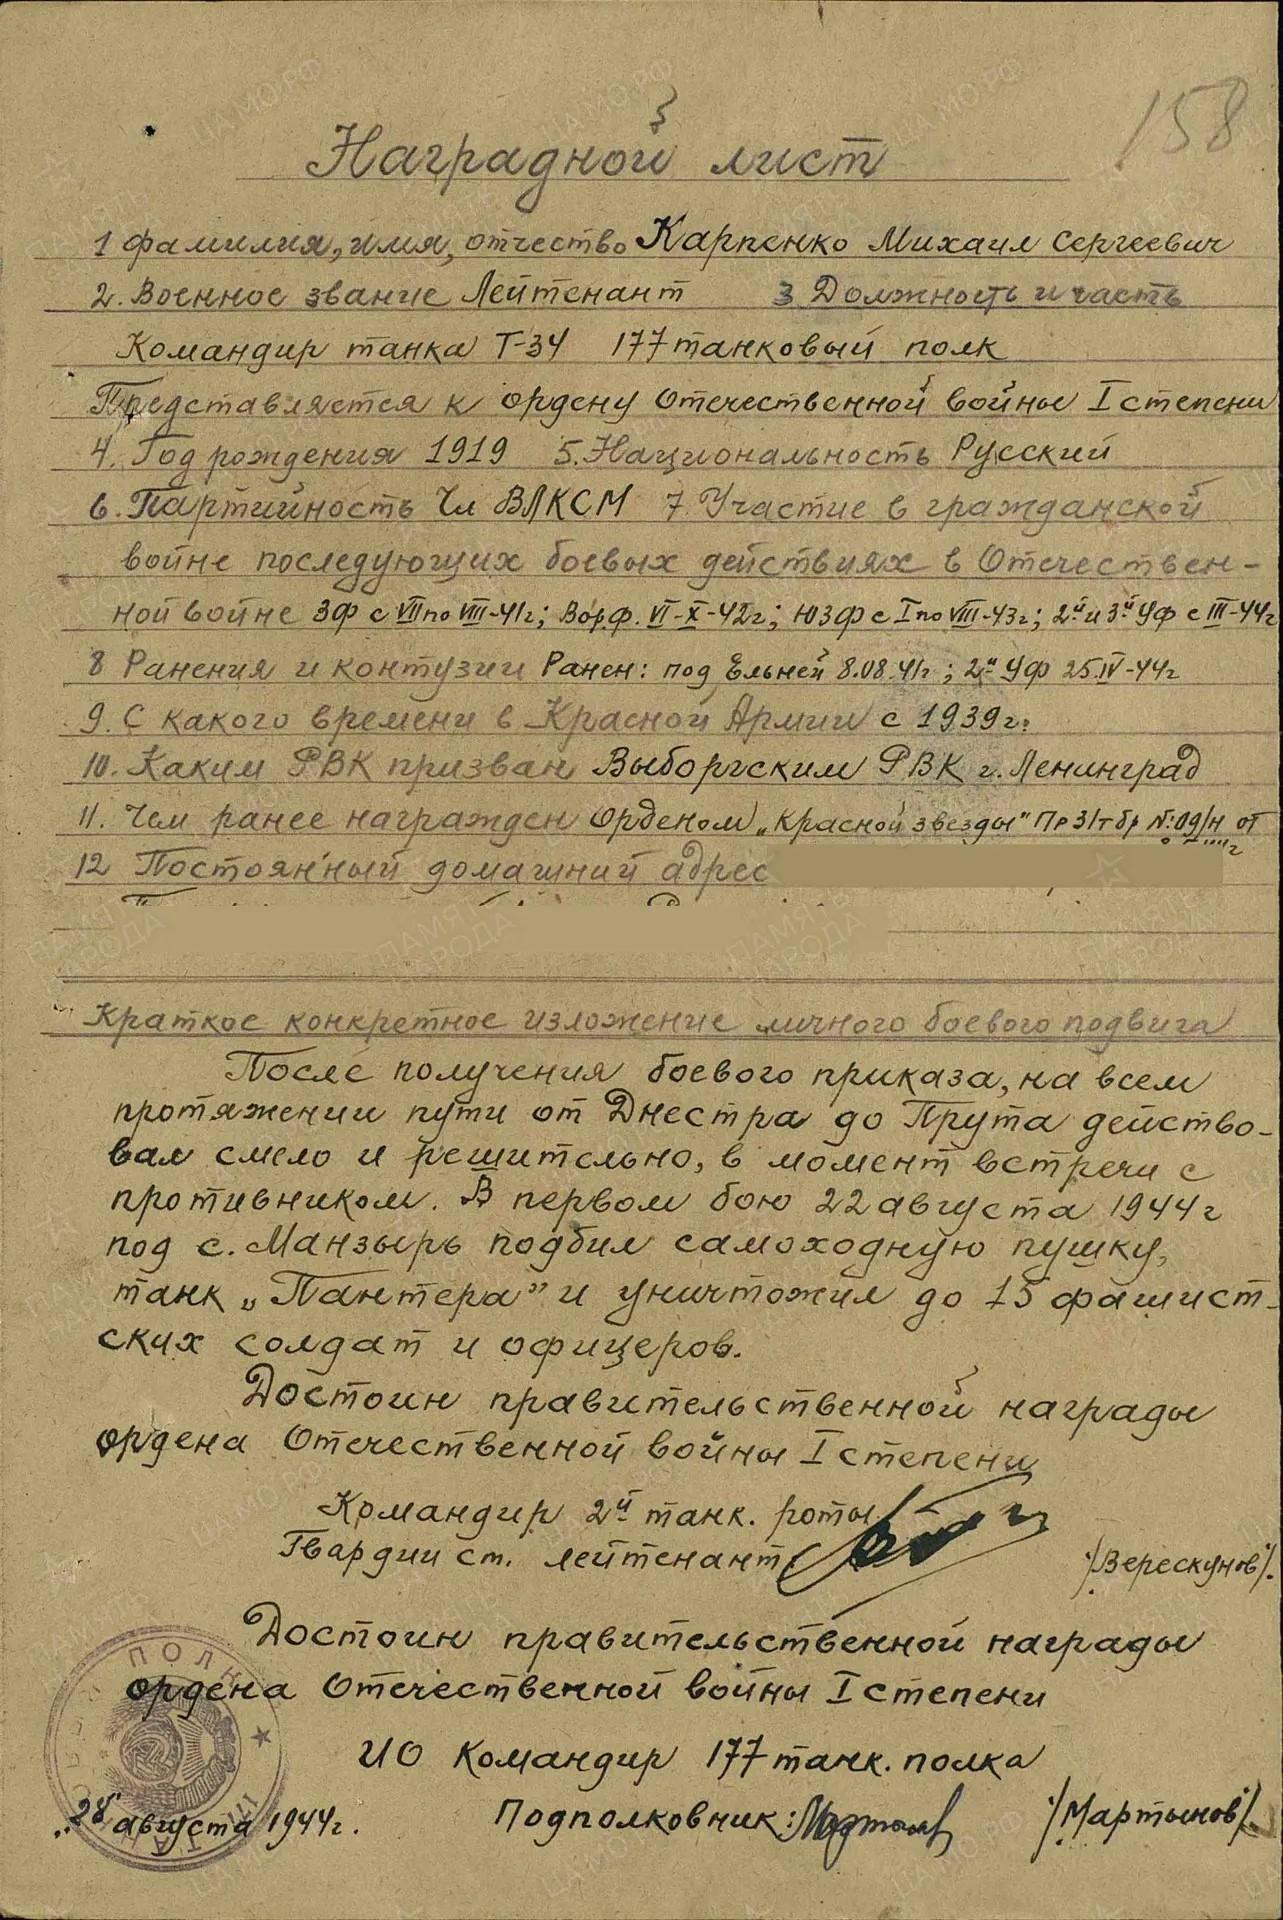 158
Наградной лист
1 Фамилия, имя, отчество Карпенко Михаил Сергеевич
2. Военное звание Лейтенант 3 Должность и часть
Командир танка Т-34 177 танковый полк
Представляется к ордену Отечественной войны I степени
4. Год рождения 1919 5. Национальность Русский
6. Партийность Чл ВЛКСМ 7 Участие в гражданской
войне последующих боевых действиях в Отечествен-
ной войне ЗФ с VII по VIII-41г; Вор.ф. VI-X-42г; ЮЗФ с I по VIII-43г; 2й и 3й УФ с III-44г
8 Ранения и контузии Ранен: под Ельней 8.08.41г; 2й УФ 25.IV-44г
9. С какого времени в Красной Армии с 1939г.
10. Каким РВК призван Выборгским РВК г. Ленинград
11. Чем ранее награжден Орденом „Красной звезды" Пр 31тбр №: 09/н от
12 Постоянный домашний адрес
Краткое конкретное изложение личного боевого подвига
После получения боевого приказа, на всем
протяжении пути от Днестра до Прута действо-
вал смело и решительно, в момент встречи с
противником. В первом бою 22 августа 1944г
под с. Манзырь подбил самоходную пушку,
танк „Пантера" и уничтожил до 15 фашист-
ских солдат и офицеров.
Достоин правительственной награды
ордена Отечественной войны I степени
Командир 2й танк. роты
Гвардии ст. лейтенант: /Верескунов/.
Достоин правительственной награды
ордена Отечественной войны I степени
ИО Командир 177 танк. полка
Подполковник: /Мартынов/.
августа 1944г.